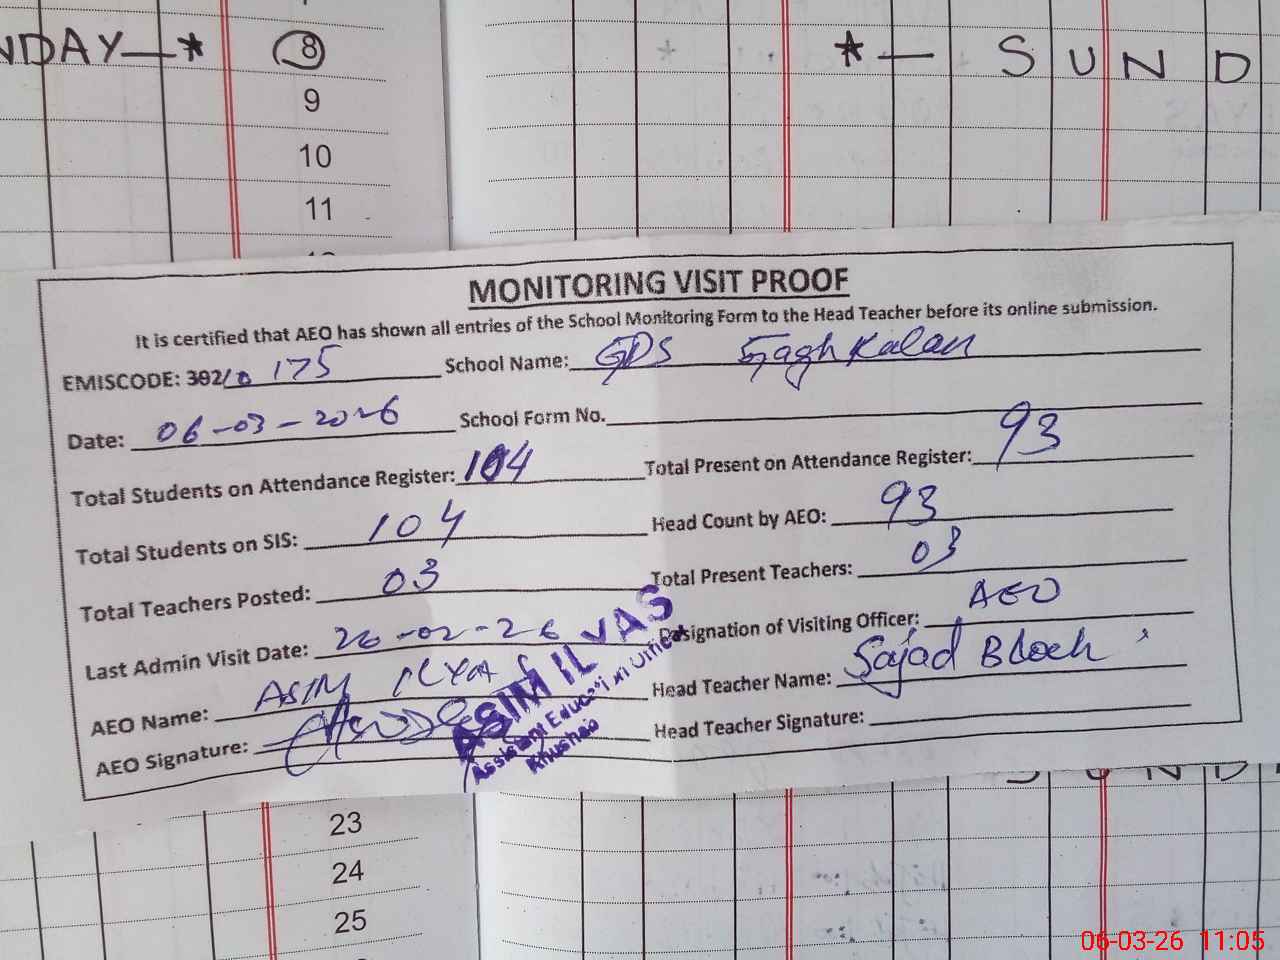 NDAY—* 8 *— SUND
9
10
11
MONITORING VISIT PROOF
It is certified that AEO has shown all entries of the School Monitoring Form to the Head Teacher before its online submission.
EMISCODE: 392/0 175 School Name: GPS Jagh Kalan
Date: 06-03-2026 School Form No.
Total Students on Attendance Register: 104 Total Present on Attendance Register: 93
Total Students on SIS: 104 Head Count by AEO: 93
Total Teachers Posted: 03 Total Present Teachers: 03
Last Admin Visit Date: 26-02-26 Designation of Visiting Officer: AEO
AEO Name: ASIM ILYAS Head Teacher Name: Sajad
AEO Signature: Head Teacher Signature:
ASIM ILYAS
Assistant Education Officer
Khushab
SUND
23
24
25
06-03-26 11:05